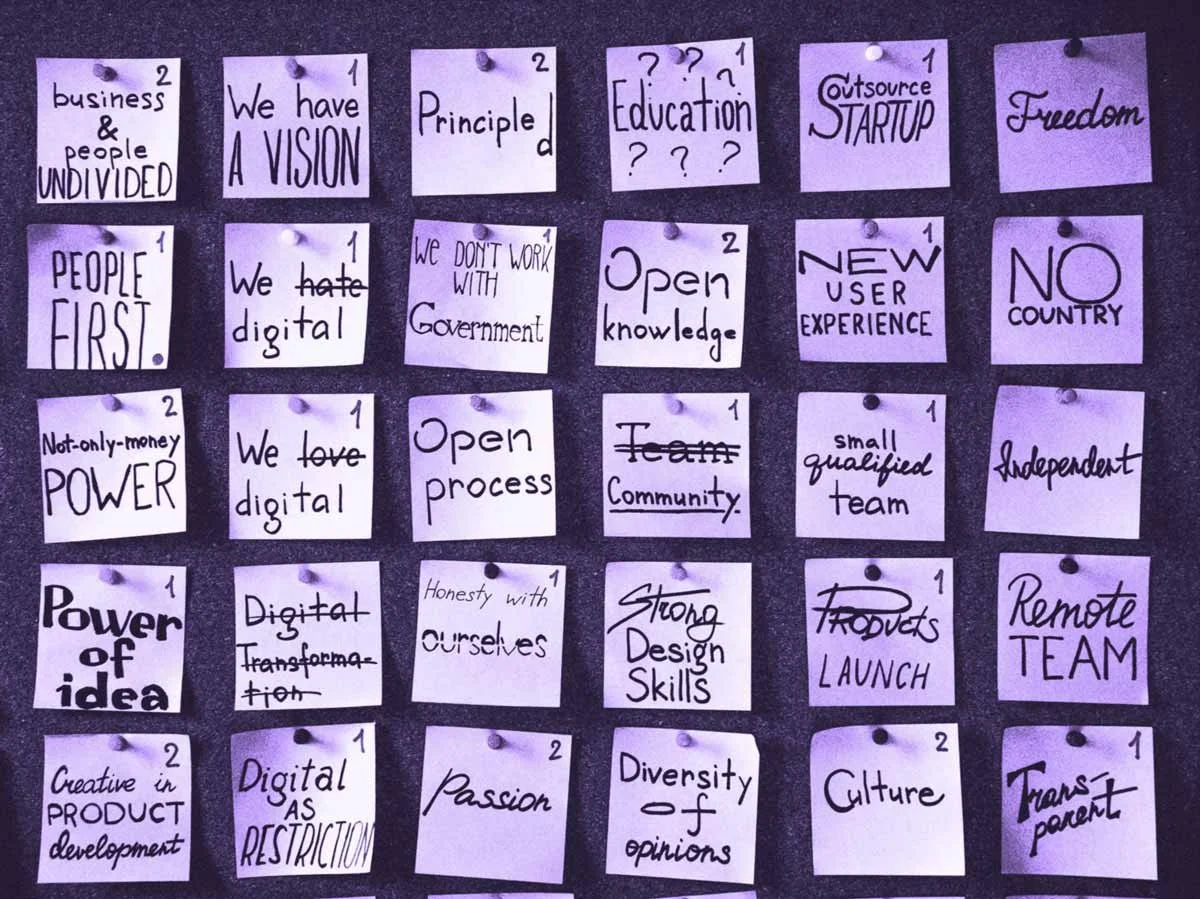 2
business
&
people
UNDIVIDED
1
We have
A VISION
2
Principled
1
? ? ?
Education
? ? ?
1
Outsource
STARTUP
Freedom
1
PEOPLE
FIRST.
1
We hate
digital
1
We DON'T WORK
WITH
Government
2
Open
knowledge
1
NEW
USER
EXPERIENCE
NO
COUNTRY
2
Not-only-money
POWER
1
We love
digital
Open
process
1
Team
Community.
1
small
qualified
team
Independent
1
Power
of
idea
Digital
Transforma-
tion
1
Honesty with
ourselves
Strong
Design
Skills
1
Products
LAUNCH
Remote
TEAM
2
Creative in
PRODUCT
development
1
Digital
AS
RESTRICTION
2
Passion
Diversity
of
opinions
2
Culture
1
Trans-
parent